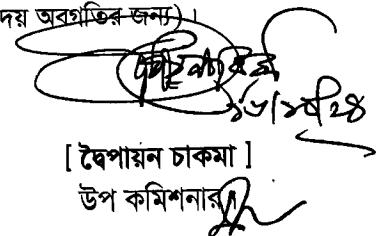 দয় অবগতির জন্য)।
[ দ্বৈপায়ন চাকমা ]
উপ কমিশনার